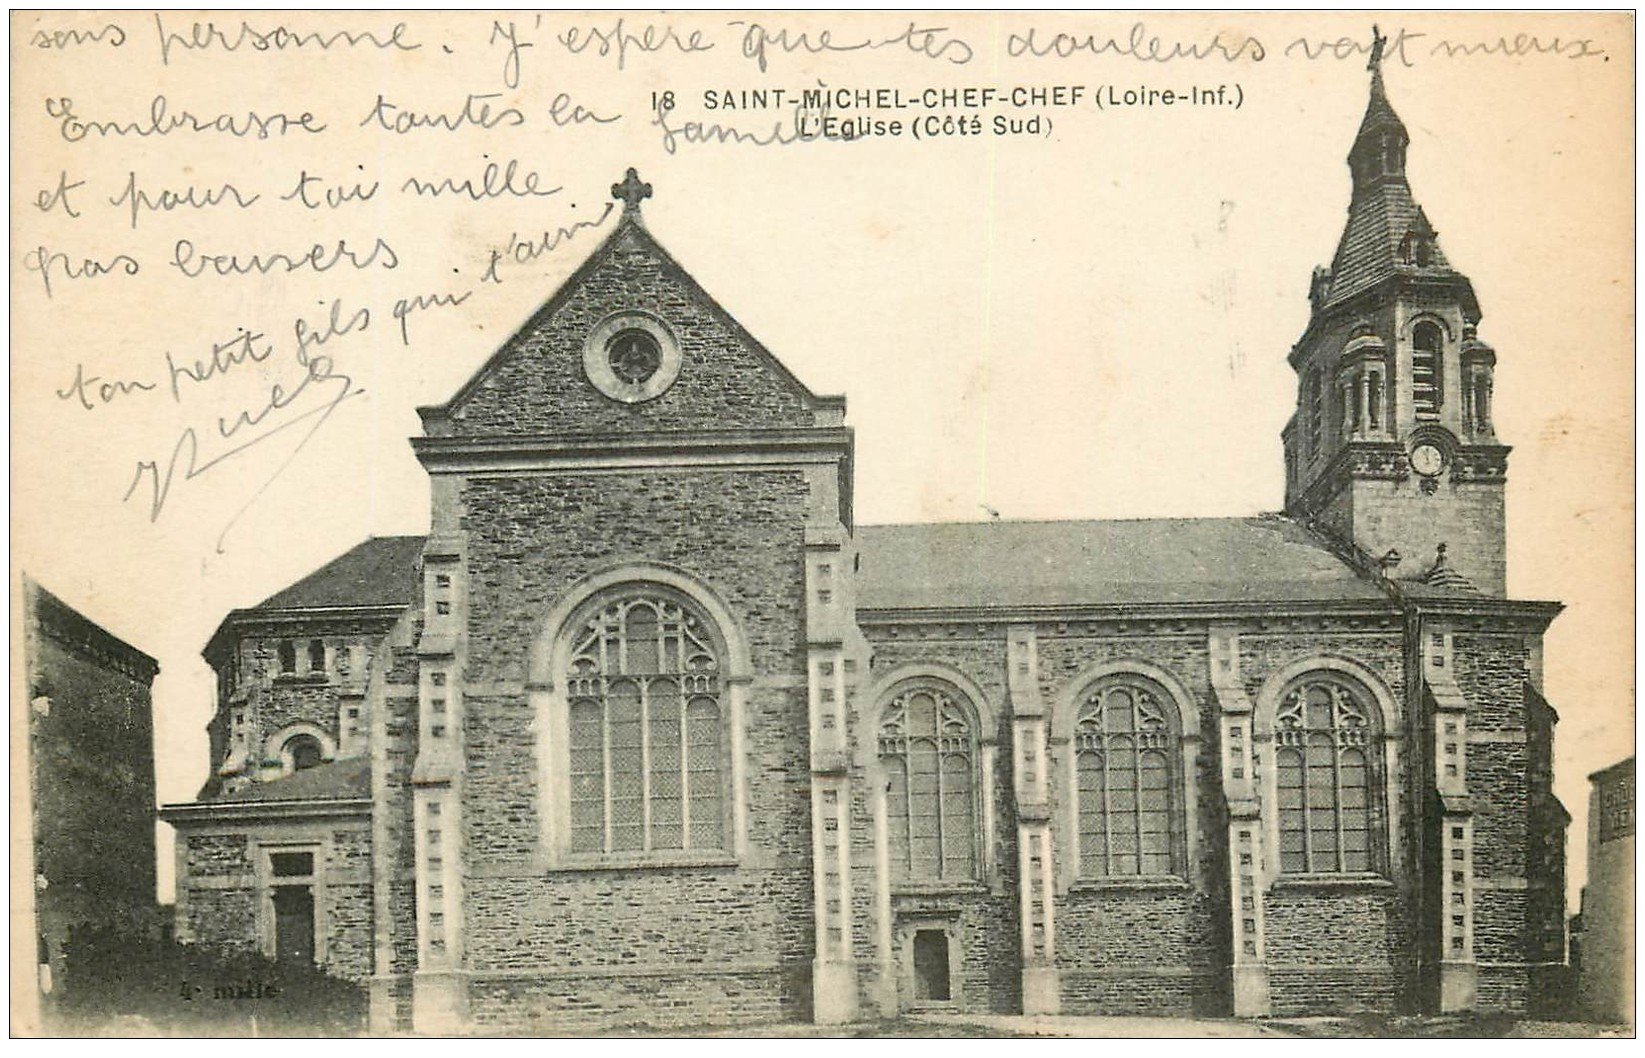 sans personne. J'espère que tes douleurs vont mieux.
18 SAINT-MICHEL-CHEF-CHEF (Loire-Inf.)
L'Eglise (Côté Sud)
Embrasse toutes la famille
et pour toi mille
gros baisers
ton petit fils qui t'aime
4e mille